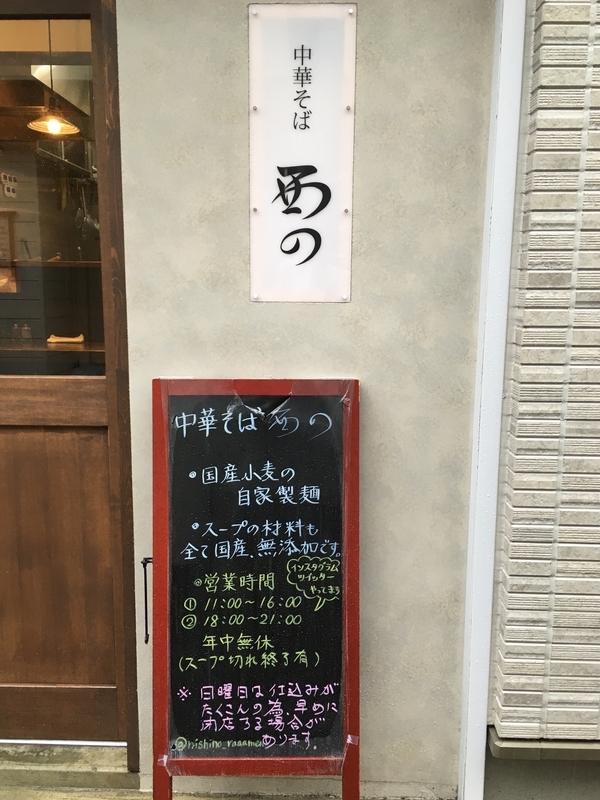 中華そば
西の
中華そば 西の
・国産小麦の
自家製麺
・スープの材料も
全て国産、無添加です。
◎営業時間
インスタグラム
ツイッター
やってます
① 11:00〜16:00
② 18:00〜21:00
年中無休
(スープ切れ終了有)
※ 日曜日は仕込みが
たくさんの為、早めに
閉店する場合が
あります。
@nishino_raaamen